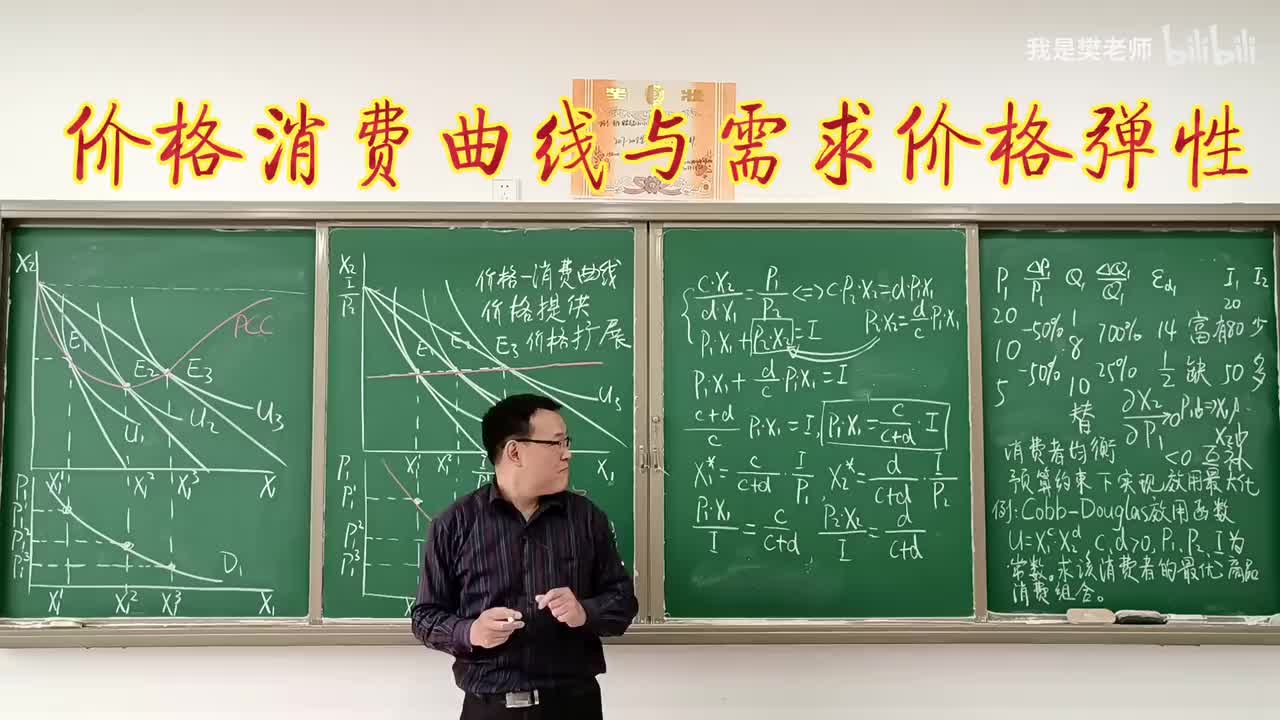 我是樊老师 bilibili
价格消费曲线与需求价格弹性
X₂
PCC
E₁
E₂
E₃
U₁
U₂
U₃
X₁¹ X₁² X₁³ X₁
P₁
P₁¹
P₁²
P₁³
D₁
X₁¹ X₁² X₁³ X₁
X₂
I/P₂
价格-消费曲线
价格提供
价格扩展
E₁ E₂ E₃
U₃
X₁¹ X₁² X₁
P₁
P₁¹
P₁²
P₁³
C·X₂/dX₁ = P₁/P₂ <=> C·P₂·X₂=dP₁X₁
P₁X₁+P₂·X₂=I P₂·X₂=d/c P₁·X₁
P₁X₁+d/c P₁X₁=I
c+d/c P₁·X₁=I, P₁·X₁=c/c+d·I
X₁*=c/c+d·I/P₁ X₂*=d/c+d·I/P₂
P₁·X₁/I=c/c+d P₂·X₂/I=d/c+d
P₁ ΔP₁/P₁ Q₁ ΔQ₁/Q₁ Ed₁ I₁ I₂
20 -50% 1 700% 14 富有 20 80 少
10 -50% 8 25% 1/2 缺 50 50 多
5 10
替 ∂X₂/∂P₁>0
<0 互补
消费者均衡
预算约束下实现效用最大化
例:Cobb-Douglas效用函数
U=X₁ᶜX₂ᵈ c,d>0, P₁,P₂,I为
常数。求该消费者的最优商品
消费组合。